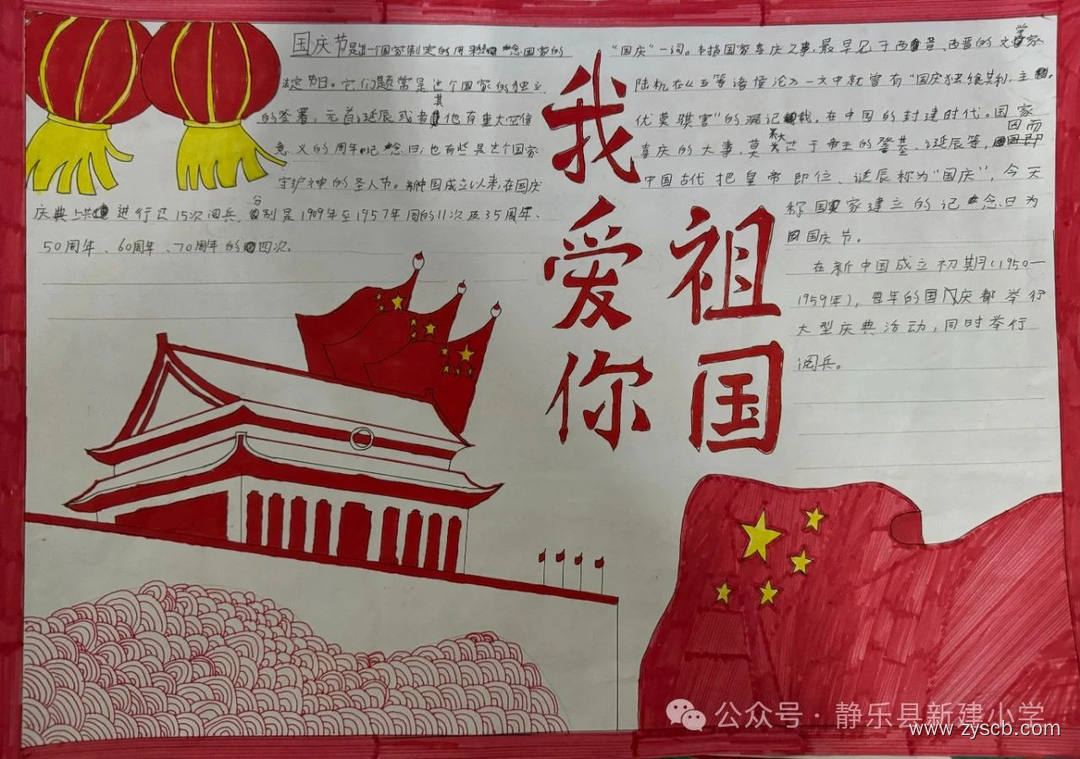 国庆节是由一个国家制定的用来纪念国家的
法定节日。它们通常是这个国家的独立、
的签署、元首诞辰或其他有重大纪念
意义的周年纪念日;也有些是这个国家
守护神的圣人节。新中国成立以来,在国庆
庆典上共进行过15次阅兵,分别是1949年至1957年间的11次及35周年、
50周年、60周年、70周年的四次。
我爱你
祖国
“国庆”一词。本指国家喜庆之事,最早见于西晋,西晋的文学家
陆机在《五等诸侯论》一文中就曾有“国庆独飨其利,主
优莫骐害”的记载,在中国的封建时代。国家
喜庆的大事,莫大过于帝王的登基、诞辰等,因而
中国古代把皇帝即位、诞辰称为“国庆”,今天
称国家建立的纪念日为
国庆节。
在新中国成立初期(1950—
1959年),每年的国庆都举行
大型庆典活动,同时举行
阅兵。
公众号·静乐县新建小学
www.zyscb.com